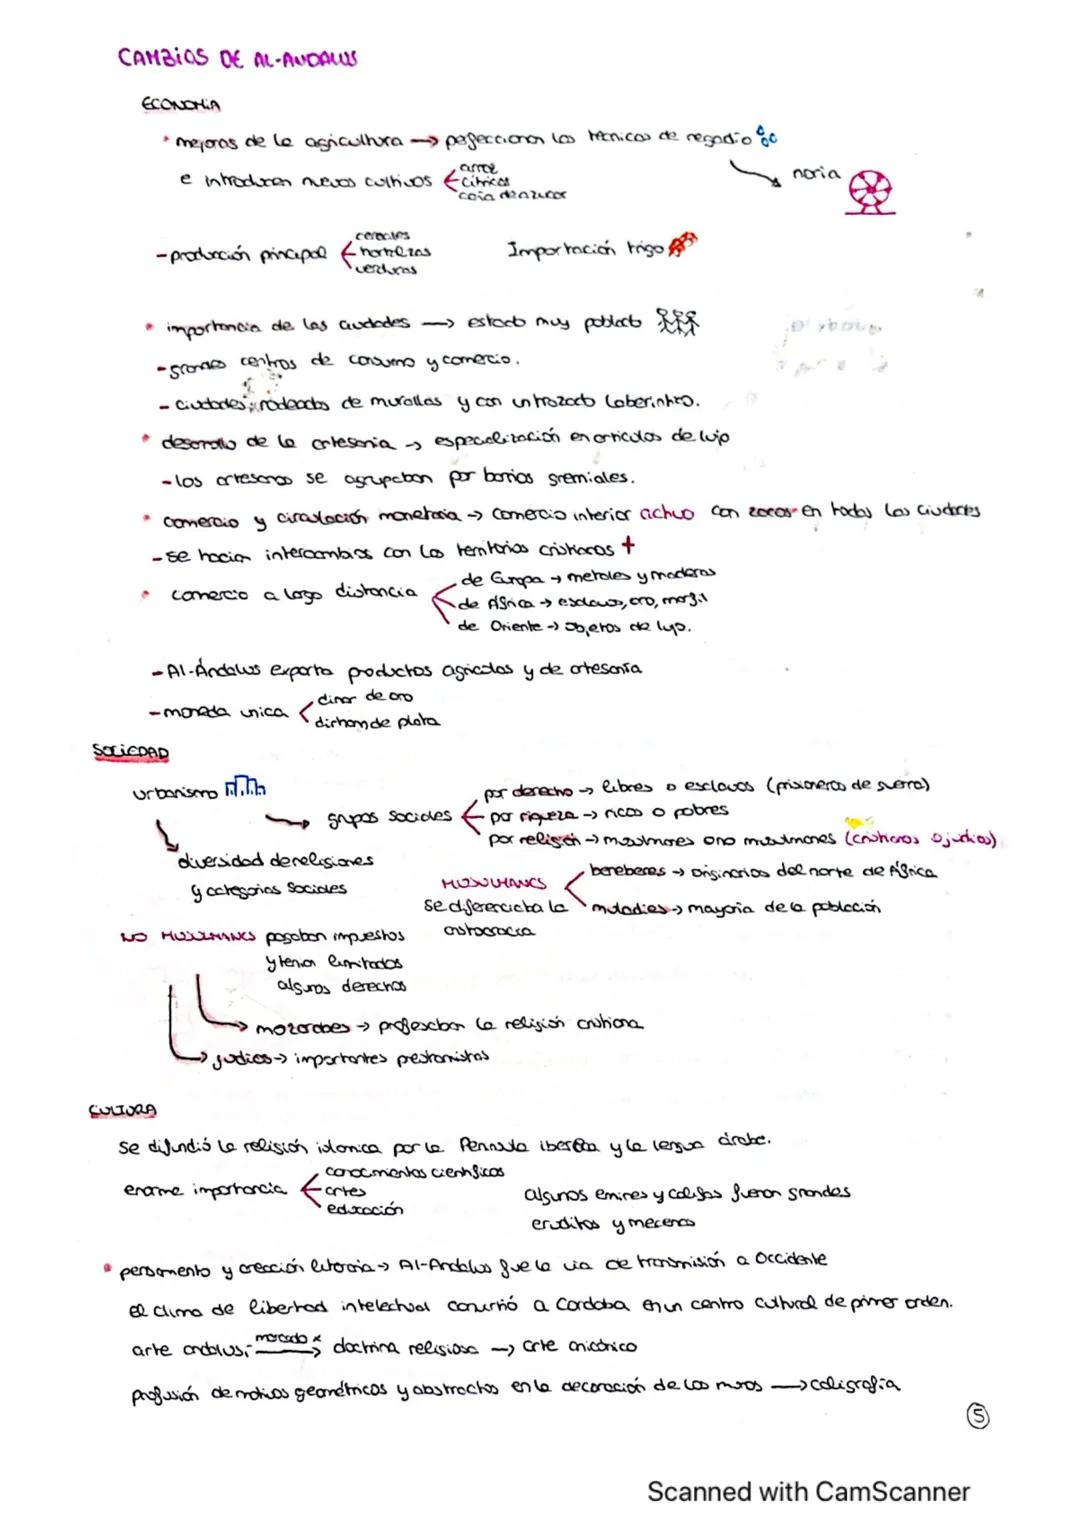 CAMBIOS DE AL-ANDALUS
ECONOMIA
• mejoras de la agricultura → pefeccionan las técnicas de regadio
noria
e introducen nuevos cultivos
arroz
cítricos
caña de azucar
- producción principal
cereales
hortalizas
verduras
Importación trigo
• importancia de las ciudades → estado muy poblado
- grandes centros de consumo y comercio.
- Ciudades rodeadas de murallas y con un trazado laberintico.
• desarrollo de la artesania → especialización en articulos de lujo
- los artesanos se agrupaban por barrios gremiales.
• comercio y circulación monetaria → comercio interior activo con zocos en todas las ciudades
- se hacian intercambios con los territorios cristianos +
• comercio a largo distancia
de Europa → metales y maderas
de África → esclavos, oro, marfil
de Oriente → objetos de lujo.
- Al-Ándalus exporta productos agricolas y de artesanía
- moneda unica
dinar de oro
dirham de plata
SOCIEDAD
urbanismo
diversidad de religiones
y categorias sociales
grupos sociales
por derecho → libres o esclavos (prisioneros de guerra)
por riqueza → ricos o pobres
por religión → musulmanes o no musulmanes (cristianos o judios)
MUSULMANES
se diferenciaba la
aristocracia
bereberes → originarios del norte de África
muladies → mayoria de la población
NO MUSULMANES pagaban impuestos
y tenian limitados
algunos derechos
mozarabes → profesaban la religión cristiana
judios → importantes prestamistas
CULTURA
Se difundió la religión islamica por la Peninsula iberica y la lengua árabe.
enorme importancia
conocimientos cientificos
artes
educación
algunos emires y califas fueron grandes
eruditos y mecenas
• pensamiento y creación literaria → Al-Andalus fue la via de transmisión a Occidente
El clima de libertad intelectual convirtió a Cordoba en un centro cultural de primer orden.
arte andalusí marcado x → doctrina religiosa → arte anicónico
profusión de motivos geométricos y abstractos en la decoración de los muros → caligrafia
5
Scanned with CamScanner